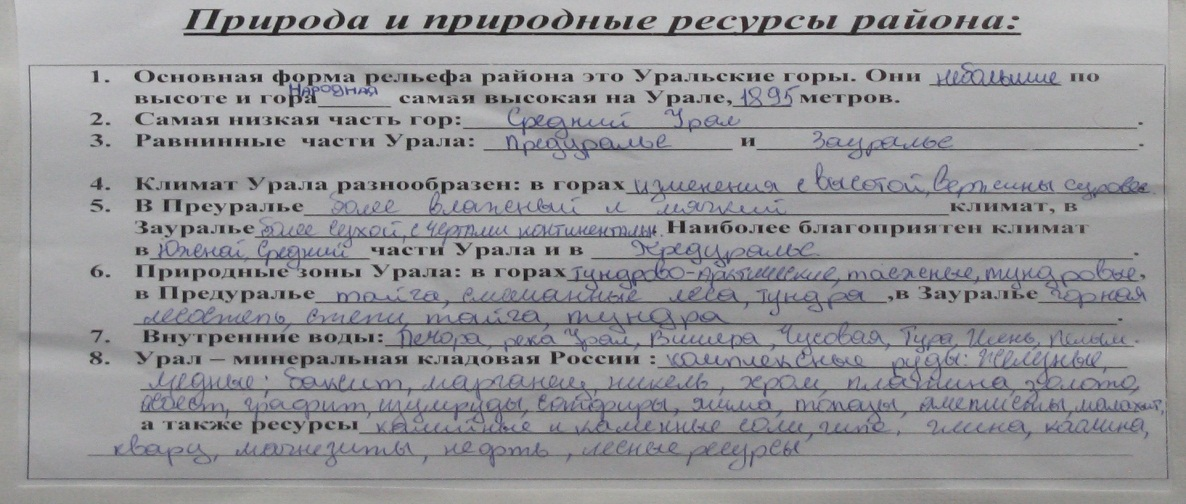 Природа и природные ресурсы района:
1. Основная форма рельефа района это Уральские горы. Они небольшие по
высоте и гора Народная самая высокая на Урале, 1895 метров.
2. Самая низкая часть гор: Средний Урал.
3. Равнинные части Урала: Предуралье и Зауралье.
4. Климат Урала разнообразен: в горах изменения с высотой, вершины суровее
5. В Преуралье более влажный и мягкий климат, в
Зауралье более сухой, с чертами континентальн. Наиболее благоприятен климат
в Южной, Средний части Урала и в Предуралье.
6. Природные зоны Урала: в горах тундрово-арктические, таежные, тундровые,
в Предуралье тайга, смешанные леса, тундра, в Зауралье горная
лесостепь, степи, тайга, тундра.
7. Внутренние воды: Печора, река Урал, Вишера, Чусовая, Тура, Пелым.
8. Урал – минеральная кладовая России : комплексные руды: железные,
медные; баксит, марганец, никель, хром, платина, золото,
асбест, графит, изумруды, сапфиры, яшма, топазы, аметисты, малахит,
а также ресурсы калийные и каменные соли, гипс, глина, каолина,
кварц, магнезиты, нефть, лесные ресурсы